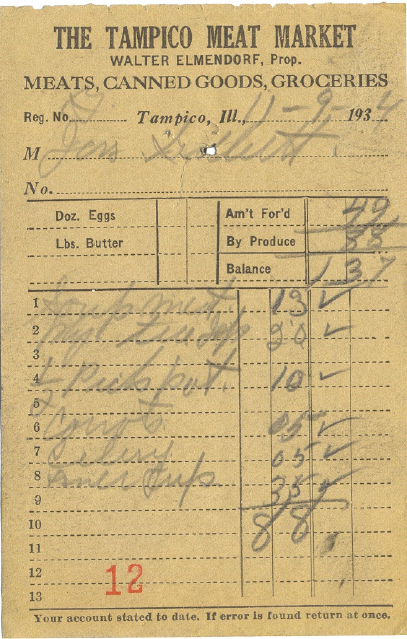 THE TAMPICO MEAT MARKET
WALTER ELMENDORF, Prop.
MEATS, CANNED GOODS, GROCERIES
Reg. No. Tampico, Ill., 11-9- 1934
M
No.
Doz. Eggs Am't For'd 49
Lbs. Butter By Produce 88
Balance 1 37
1 Soup meat 13 ✓
2 20 ✓
3
4 Peck pot. 10 ✓
5
6 Carrots 05 ✓
7 Celery 05 ✓
8 35 ✓
9
10 88
11
12
13
12
Your account stated to date. If error is found return at once.